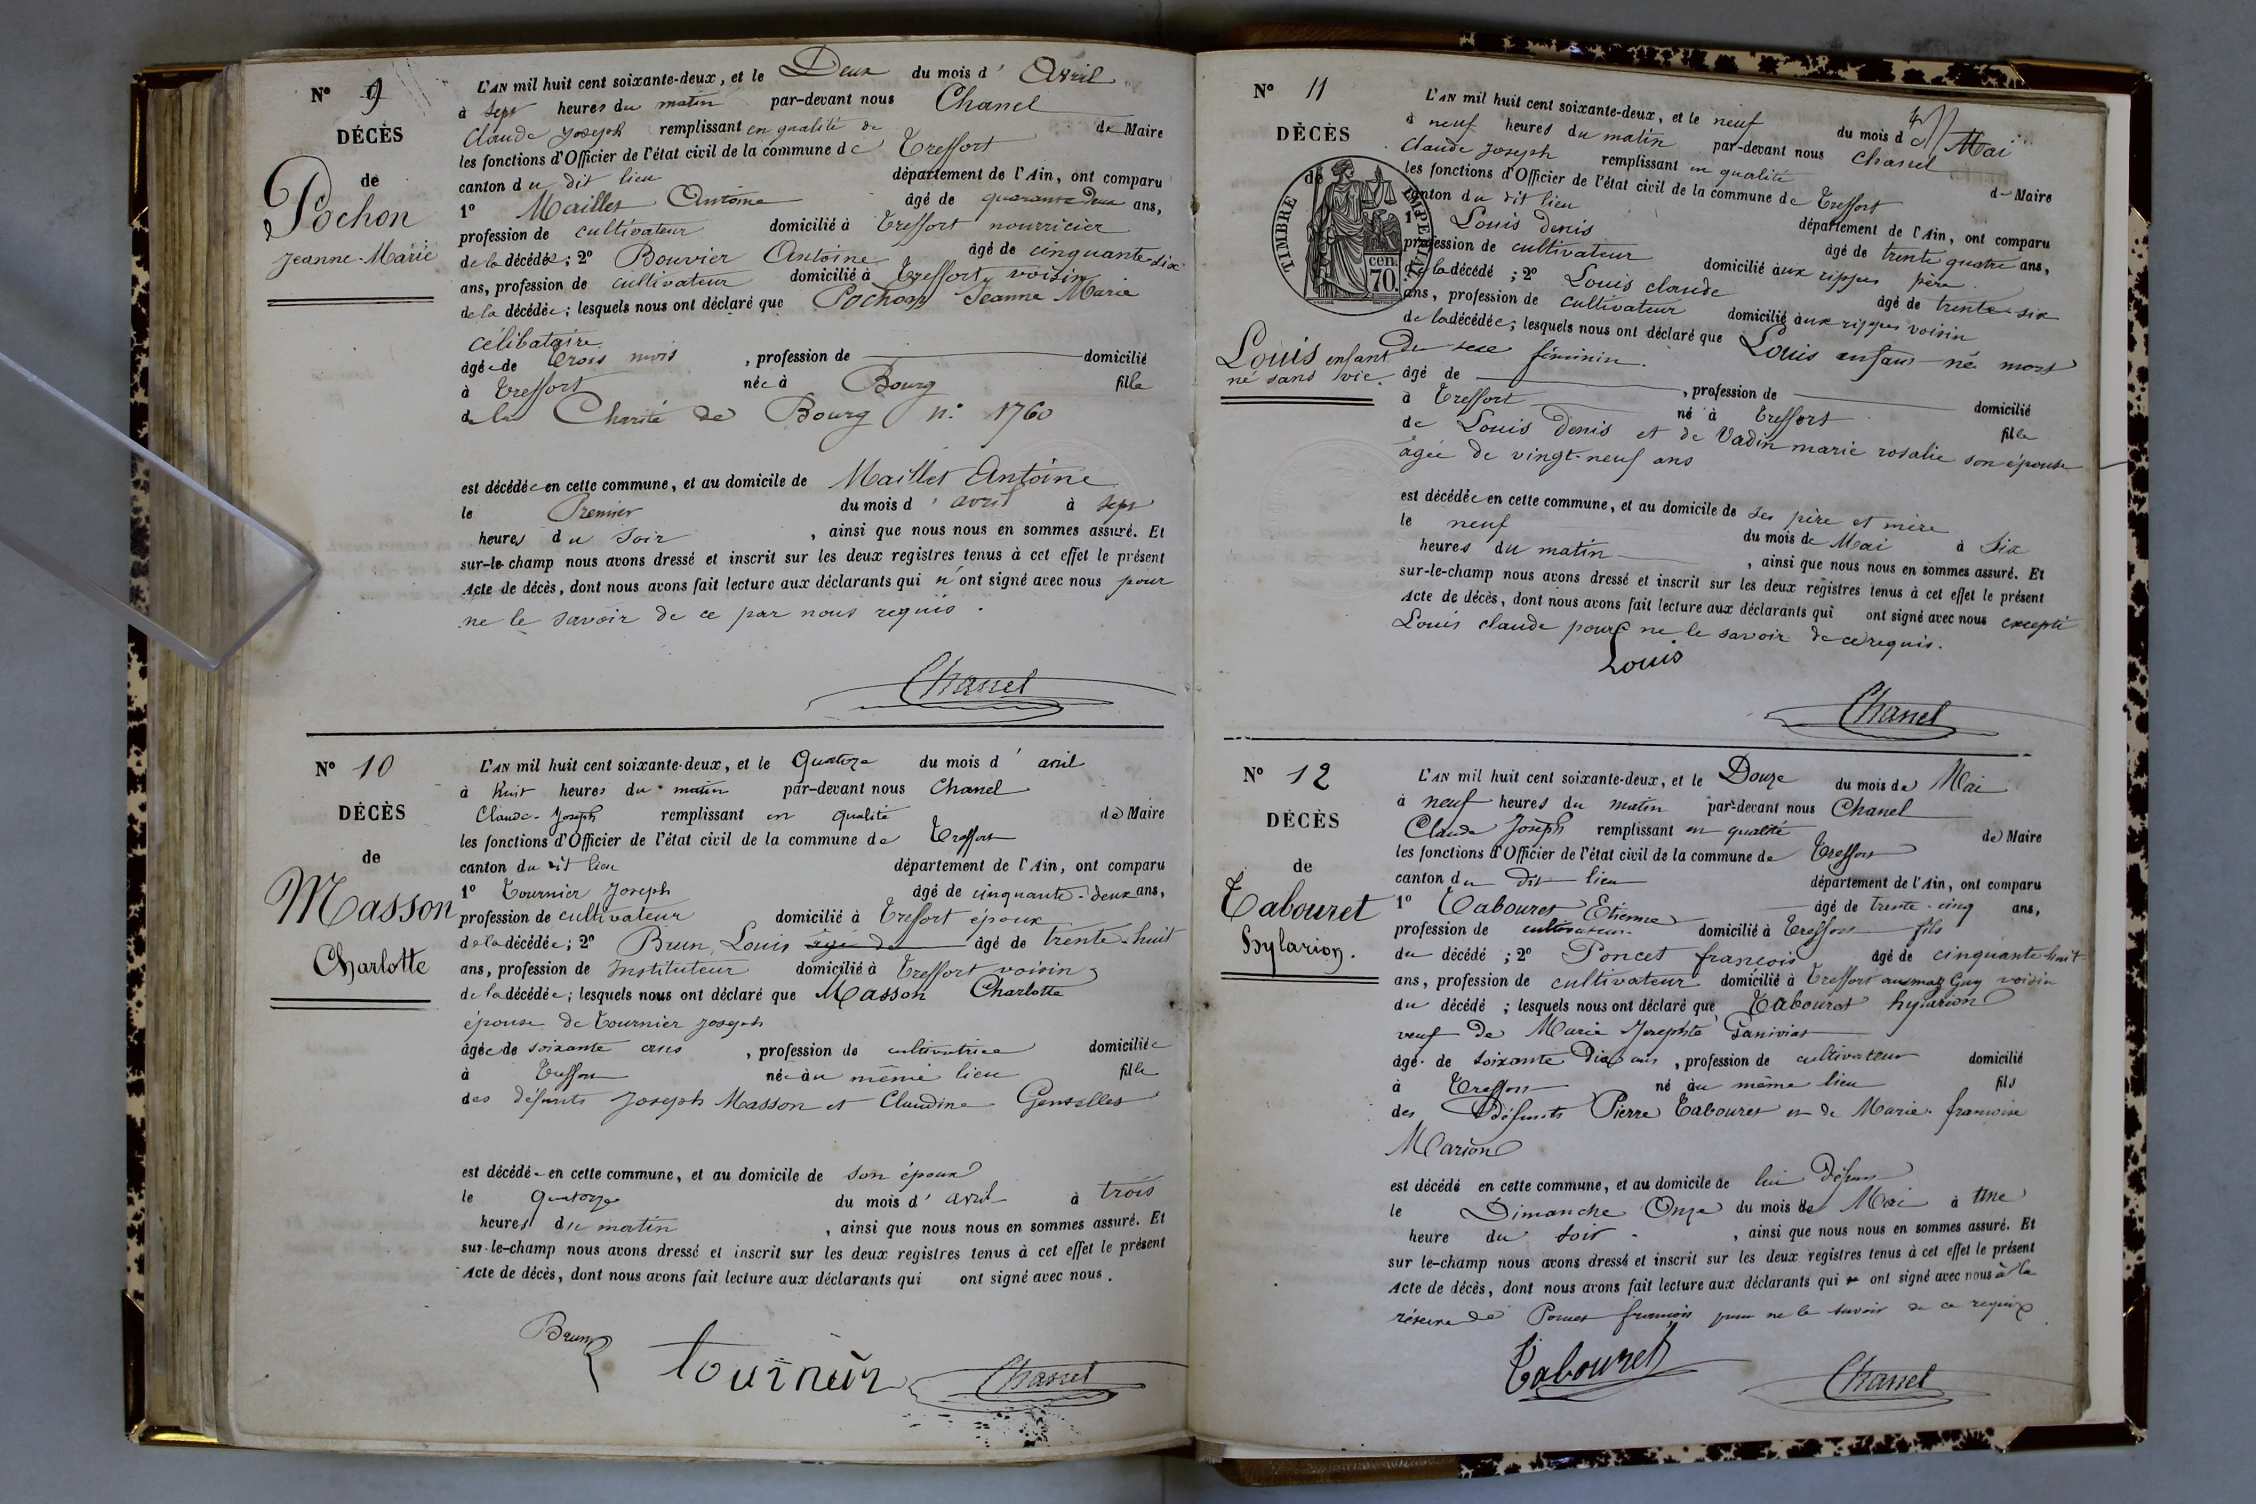 N° 9
DÉCÈS
de
Pochon
Jeanne-Marie
L'AN mil huit cent soixante-deux, et le Deux du mois d' Avril
à sept heures du matin par-devant nous Chanel
Claude Joseph remplissant en qualité de de Maire
les fonctions d'Officier de l'état civil de la commune de Treffort
canton du dit lieu département de l'Ain, ont comparu
1° Maillet Antoine âgé de quarante Deux ans,
profession de cultivateur domicilié à Treffort nourricier
de la décédée; 2° Bouvier Antoine âgé de cinquante six
ans, profession de cultivateur domicilié à Treffort voisin
de la décédée; lesquels nous ont déclaré que Pochon Jeanne Marie
célibataire
âgée de trois mois , profession de domicilié
à Treffort née à Bourg fille
de la Charité de Bourg n° 1760
est décédée en cette commune, et au domicile de Maillet Antoine
le Premier du mois d' avril à sept
heures du soir , ainsi que nous nous en sommes assuré. Et
sur-le-champ nous avons dressé et inscrit sur les deux registres tenus à cet effet le présent
Acte de décès, dont nous avons fait lecture aux déclarants qui n'ont signé avec nous pour
ne le savoir de ce par nous requis.
Chanel
N° 10
DÉCÈS
de
Masson
Charlotte
L'AN mil huit cent soixante-deux, et le Quatorze du mois d' avril
à huit heures du matin par-devant nous Chanel
Claude-Joseph remplissant en qualité de Maire
les fonctions d'Officier de l'état civil de la commune de Treffort
canton du dit lieu département de l'Ain, ont comparu
1° Tournier Joseph âgé de cinquante-deux ans,
profession de cultivateur domicilié à Treffort époux
de la décédée; 2° Brun Louis âgé de âgé de trente-huit
ans, profession de Instituteur domicilié à Treffort voisin
de la décédée; lesquels nous ont déclaré que Masson Charlotte
épouse de Tournier Joseph
âgée de soixante ans , profession de cultivatrice domiciliée
à Treffort née au même lieu fille
des défunts Joseph Masson et Claudine
est décédée en cette commune, et au domicile de son époux
le quatorze du mois d' avril à trois
heures du matin , ainsi que nous nous en sommes assuré. Et
sur-le-champ nous avons dressé et inscrit sur les deux registres tenus à cet effet le présent
Acte de décès, dont nous avons fait lecture aux déclarants qui ont signé avec nous.
Brun Tournier Chanel
N° 11
DÉCÈS
de
TIMBRE IMPÉRIAL
cen. 70.
Louis enfant
né sans vie.
L'AN mil huit cent soixante-deux, et le neuf du mois de Mai
à neuf heures du matin par-devant nous Chanel
Claude Joseph remplissant en qualité de Maire
les fonctions d'Officier de l'état civil de la commune de Treffort
canton du dit lieu département de l'Ain, ont comparu
1° Louis Denis âgé de trente quatre ans,
profession de cultivateur domicilié aux rippes père
de la décédé ; 2° Louis claude âgé de trente-six
ans, profession de cultivateur domicilié aux rippes voisin
de la décédée; lesquels nous ont déclaré que Louis enfant né mort
du sexe féminin.
âgé de , profession de domicilié
à Treffort né à Treffort fille
de Louis Denis et de Vadin marie rosalie son épouse
âgée de vingt-neuf ans
est décédée en cette commune, et au domicile de ses père et mère
le neuf du mois de Mai à six
heures du matin , ainsi que nous nous en sommes assuré. Et
sur-le-champ nous avons dressé et inscrit sur les deux registres tenus à cet effet le présent
Acte de décès, dont nous avons fait lecture aux déclarants qui ont signé avec nous excepté
Louis claude pour ne le savoir de ce requis.
Louis
Chanel
N° 12
DÉCÈS
de
Tabouret
hylarion.
L'AN mil huit cent soixante-deux, et le Douze du mois de Mai
à neuf heures du matin par-devant nous Chanel
Claude Joseph remplissant en qualité de Maire
les fonctions d'Officier de l'état civil de la commune de Treffort
canton du dit lieu département de l'Ain, ont comparu
1° Tabouret Etienne âgé de trente-cinq ans,
profession de cultivateur domicilié à Treffort fils
du décédé ; 2° Poncet françois âgé de cinquante-huit
ans, profession de cultivateur domicilié à Treffort voisin
du décédé ; lesquels nous ont déclaré que Tabouret hylarion
veuf de Marie Josephte
âgé de soixante Dix ans , profession de cultivateur domicilié
à Treffort né au même lieu fils
des Défunts Pierre Tabouret et de Marie-françoise
Marion
est décédé en cette commune, et au domicile de lui Défunt
le Dimanche Onze du mois de Mai à une
heure du soir , ainsi que nous nous en sommes assuré. Et
sur le-champ nous avons dressé et inscrit sur les deux registres tenus à cet effet le présent
Acte de décès, dont nous avons fait lecture aux déclarants qui ont signé avec nous à la
réserve de Poncet françois pour ne le savoir de ce requis
Tabouret
Chanel